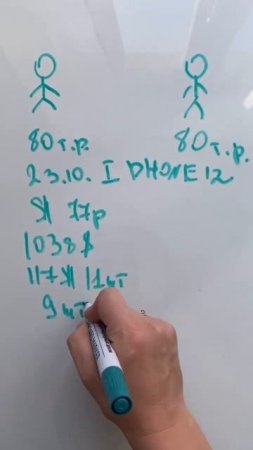 80 т.р. 80 т.р.
23.10. I PHONE 12
77р
1038$
117 11 шт
9 шт